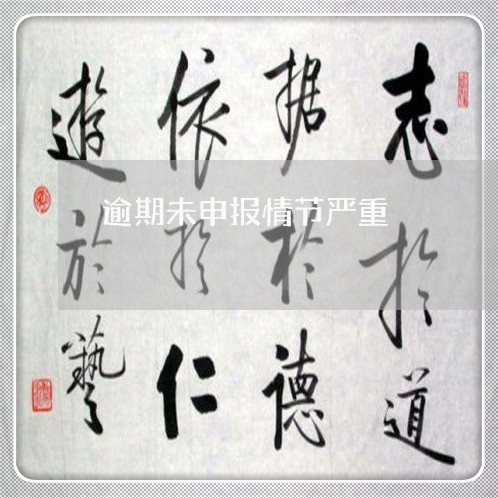 志於道
据於德
依於仁
遊於藝
逾期未申报情节严重